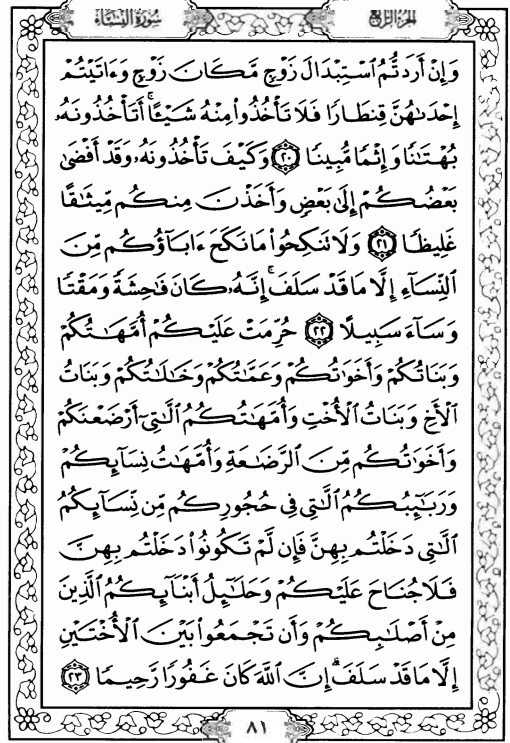 سُورَةُ النِّسَاءِ
الجُزْءُ الرَّابِعُ
وَإِنْ أَرَدتُّمُ ٱسْتِبْدَالَ زَوْجٍ مَّكَانَ زَوْجٍ وَءَاتَيْتُمْ
إِحْدَىٰهُنَّ قِنطَارًا فَلَا تَأْخُذُوا۟ مِنْهُ شَيْـًٔا ۚ أَتَأْخُذُونَهُۥ
بُهْتَـٰنًا وَإِثْمًا مُّبِينًا ﴿٢٠﴾ وَكَيْفَ تَأْخُذُونَهُۥ وَقَدْ أَفْضَىٰ
بَعْضُكُمْ إِلَىٰ بَعْضٍ وَأَخَذْنَ مِنكُم مِّيثَـٰقًا
غَلِيظًا ﴿٢١﴾ وَلَا تَنكِحُوا۟ مَا نَكَحَ ءَابَآؤُكُم مِّنَ
ٱلنِّسَآءِ إِلَّا مَا قَدْ سَلَفَ ۚ إِنَّهُۥ كَانَ فَـٰحِشَةً وَمَقْتًا
وَسَآءَ سَبِيلًا ﴿٢٢﴾ حُرِّمَتْ عَلَيْكُمْ أُمَّهَـٰتُكُمْ
وَبَنَاتُكُمْ وَأَخَوَٰتُكُمْ وَعَمَّـٰتُكُمْ وَخَـٰلَـٰتُكُمْ وَبَنَاتُ
ٱلْأَخِ وَبَنَاتُ ٱلْأُخْتِ وَأُمَّهَـٰتُكُمُ ٱلَّـٰتِىٓ أَرْضَعْنَكُمْ
وَأَخَوَٰتُكُم مِّنَ ٱلرَّضَـٰعَةِ وَأُمَّهَـٰتُ نِسَآئِكُمْ
وَرَبَـٰٓئِبُكُمُ ٱلَّـٰتِى فِى حُجُورِكُم مِّن نِّسَآئِكُمُ
ٱلَّـٰتِى دَخَلْتُم بِهِنَّ فَإِن لَّمْ تَكُونُوا۟ دَخَلْتُم بِهِنَّ
فَلَا جُنَاحَ عَلَيْكُمْ وَحَلَـٰٓئِلُ أَبْنَآئِكُمُ ٱلَّذِينَ
مِنْ أَصْلَـٰبِكُمْ وَأَن تَجْمَعُوا۟ بَيْنَ ٱلْأُخْتَيْنِ
إِلَّا مَا قَدْ سَلَفَ ۗ إِنَّ ٱللَّهَ كَانَ غَفُورًا رَّحِيمًا ﴿٢٣﴾
٨١